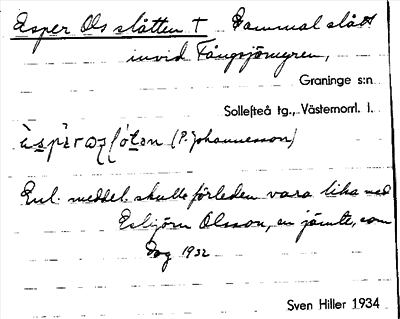 Esper Ols slåtten † Gammal slått
invid Fångsjömyren,
Graninge s:n
Sollefteå tg., Västernorrl. l.
(P. Johannesson)
Enl. meddel. skulle förleden vara lika med
Esbjörn Olsson, en jämte, som
dog 1932
Sven Hiller 1934